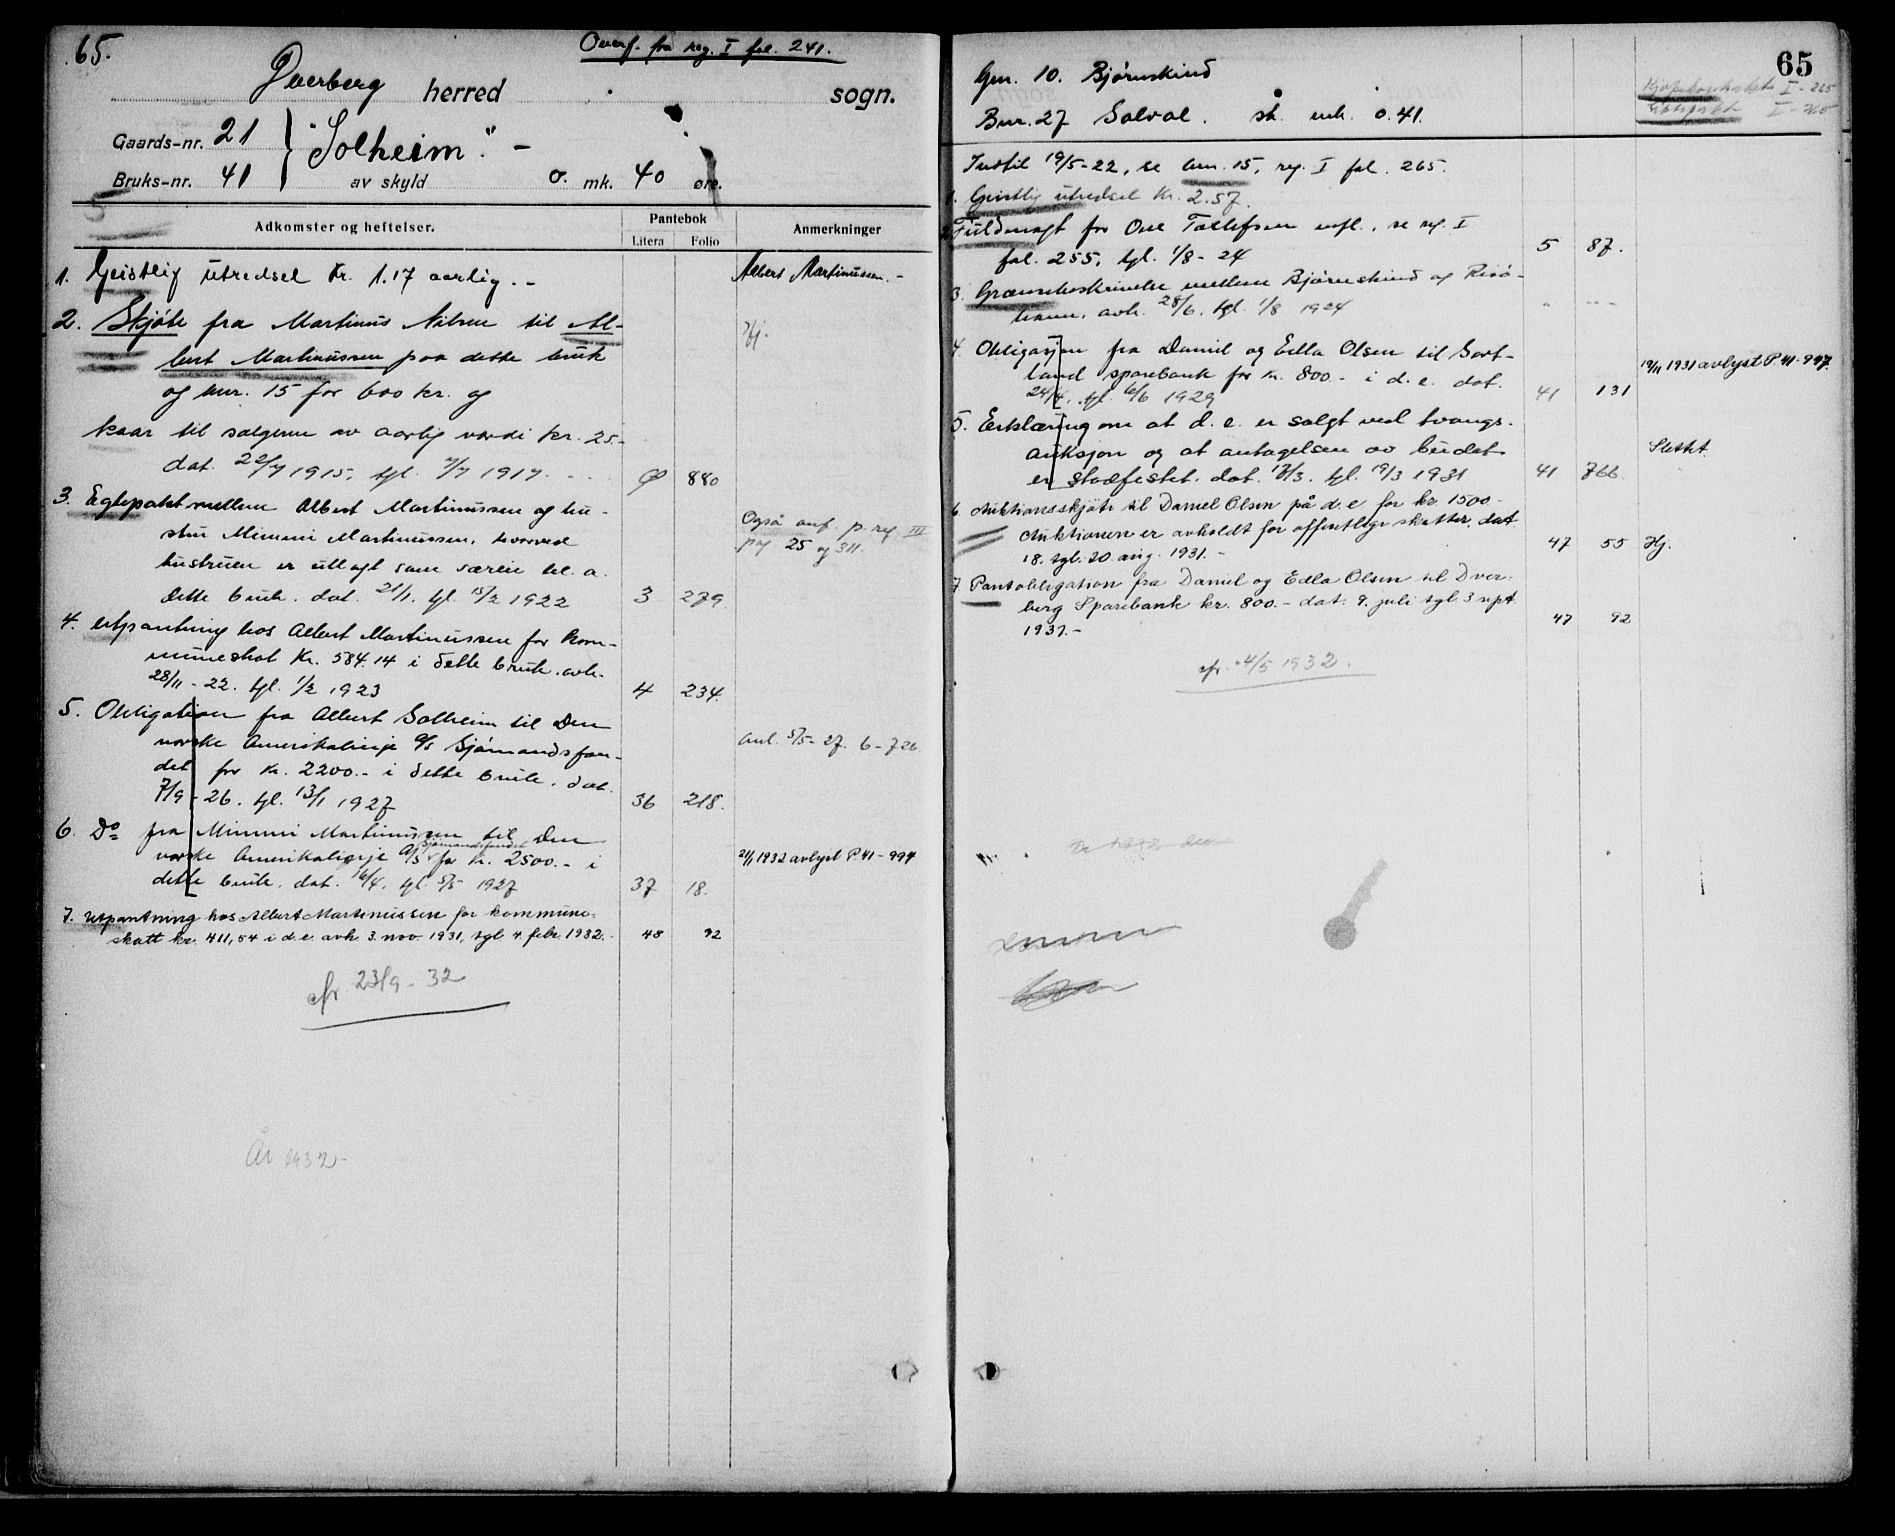 65.
Overf. fra reg. I fol. 241.
Dverberg herred sogn.
Gaards-nr. 21 } "Solheim". -
Bruks-nr. 41 av skyld 0. mk. 40 øre.
Adkomster og heftelser. Pantebok Anmerkninger
Litera Folio
1. Geistlig utredsel kr. 1.17 aarlig. - Albert Martinussen. -
2. Skjøte fra Martinus Nilsen til Al- Hj.
bert Martinussen paa dette bruk
og bnr. 15 for 600 kr. og
kaar til sælgerne av aarlig værdi kr. 25.-
dat. 22/7 1915, tgl. 7/7 1917. 880
3. Egtepakt mellem Albert Martinussen og hu-
stru Mimmi Martinussen, hvorved Også anf. p. reg III
pag. 25 og 311.
hustruen er utlagt som særeie bl. a.
dette bruk. dat. 21/1. tgl. 15/2 1922 3 279
4. Utpantning hos Albert Martinussen for kom-
muneskat kr. 584.14 i dette bruk. avh.
28/11 - 22. tgl. 1/2 1923 4 234.
5. Obligation fra Albert Solheim til Den
norske Amerikalinje A/S Sjømandsfon- Anl. 5/5-27. 6-726.
det for kr. 2200.- i dette bruk. dat.
7/9 - 26. tgl. 13/1 1927 36 218.
6. Do fra Mimmi Martinussen til Den
norske Amerikalinje A/S Sjømandsfondet for kr. 2500.- i 21/1 1932 avlyst P. 41-994
dette bruk. dat. 16/4. tgl. 5/5 1927 37 18.
7. Utpantning hos Albert Martinussen for kommune-
skatt kr. 411,54 i d.e. avh. 3. nov. 1931, tgl. 4. febr. 1932. - 48 92
cfr 23/9 - 32
År 1932-
65
Gnr. 10. Bjørnskind
Bnr. 27 Solvol. sk. mk. 0.41.
I - 265
I - 265
Indtil 19/5-22, se bnr. 15, reg. I fol. 265.
1. Geistlig utredsel kr. 2.57.
2. Fuldmagt for Ove Tollefsen mfl., se reg. I
fol. 255, tgl. 1/8 - 24 5 87.
3. Grænsebeskrivelse mellem Bjørnskind og Risø-
hamn, avh. 28/6. tgl. 1/8 1924 " - " -
4. Obligasjon fra Daniel og Edla Olsen til Sort-
land sparebank for kr. 800.- i d.e. dat. 19/11 1931 avlyst P. 41-947.
24/4. tgl. 6/6 1929 41 131
5. Erklæring om at d.e. er solgt ved tvangs-
auksjon og at antagelsen av budet Slettet.
er stadfestet. dat. 17/3. tgl. 19/3 1931 41 766.
6. Auktionsskjøte til Daniel Olsen på d.e for kr 1500.-
Auktionen er avholdt for offentlige skatter, dat
18. tgl. 20 aug. 1931. - 47 55 Hj.
7 Pantobligation fra Daniel og Edla Olsen til Dver-
berg Sparebank kr. 800.- dat. 9. juli tgl. 3 sept
1931. - 47 92
cfr. 4/5 1932.